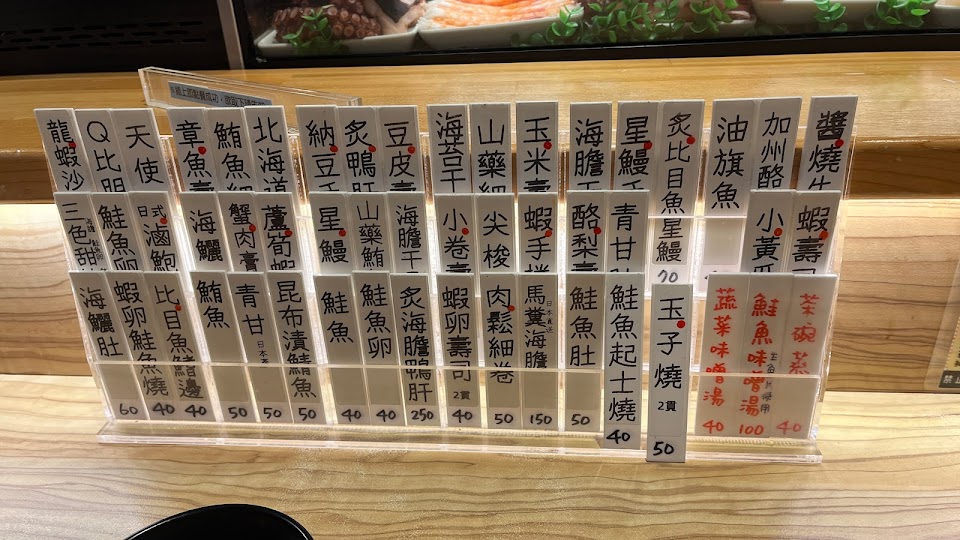 龍蝦沙
Q比目
天使
章魚壽
鮪魚細
北海道
納豆手
炙鴨肝
豆皮壽
海苔干
山藥細
玉米壽
海膽干
星鰻
炙比目魚
油旗魚
加州酪
醬燒牛
三色甜
鮭魚卵
日式滷鮑
海鱺
蟹肉膏
蘆筍蝦
星鰻
山藥鮪
海膽干
小卷壽
尖梭
蝦手捲
酪梨壽
青甘
星鰻
70
小黃瓜
蝦壽司
海鱺肚
60
蝦卵鮭魚燒
40
比目魚鰭邊
40
鮪魚
50
青甘
日本
50
昆布漬鯖魚
50
鮭魚
40
鮭魚卵
40
炙海膽鴨肝
250
蝦卵壽司
2貫
40
肉鬆細卷
50
馬糞海膽
日本直送
150
鮭魚肚
50
鮭魚起士燒
40
玉子燒
2貫
50
蔬菜味噌湯
40
鮭魚味噌湯
100
茶碗蒸
40